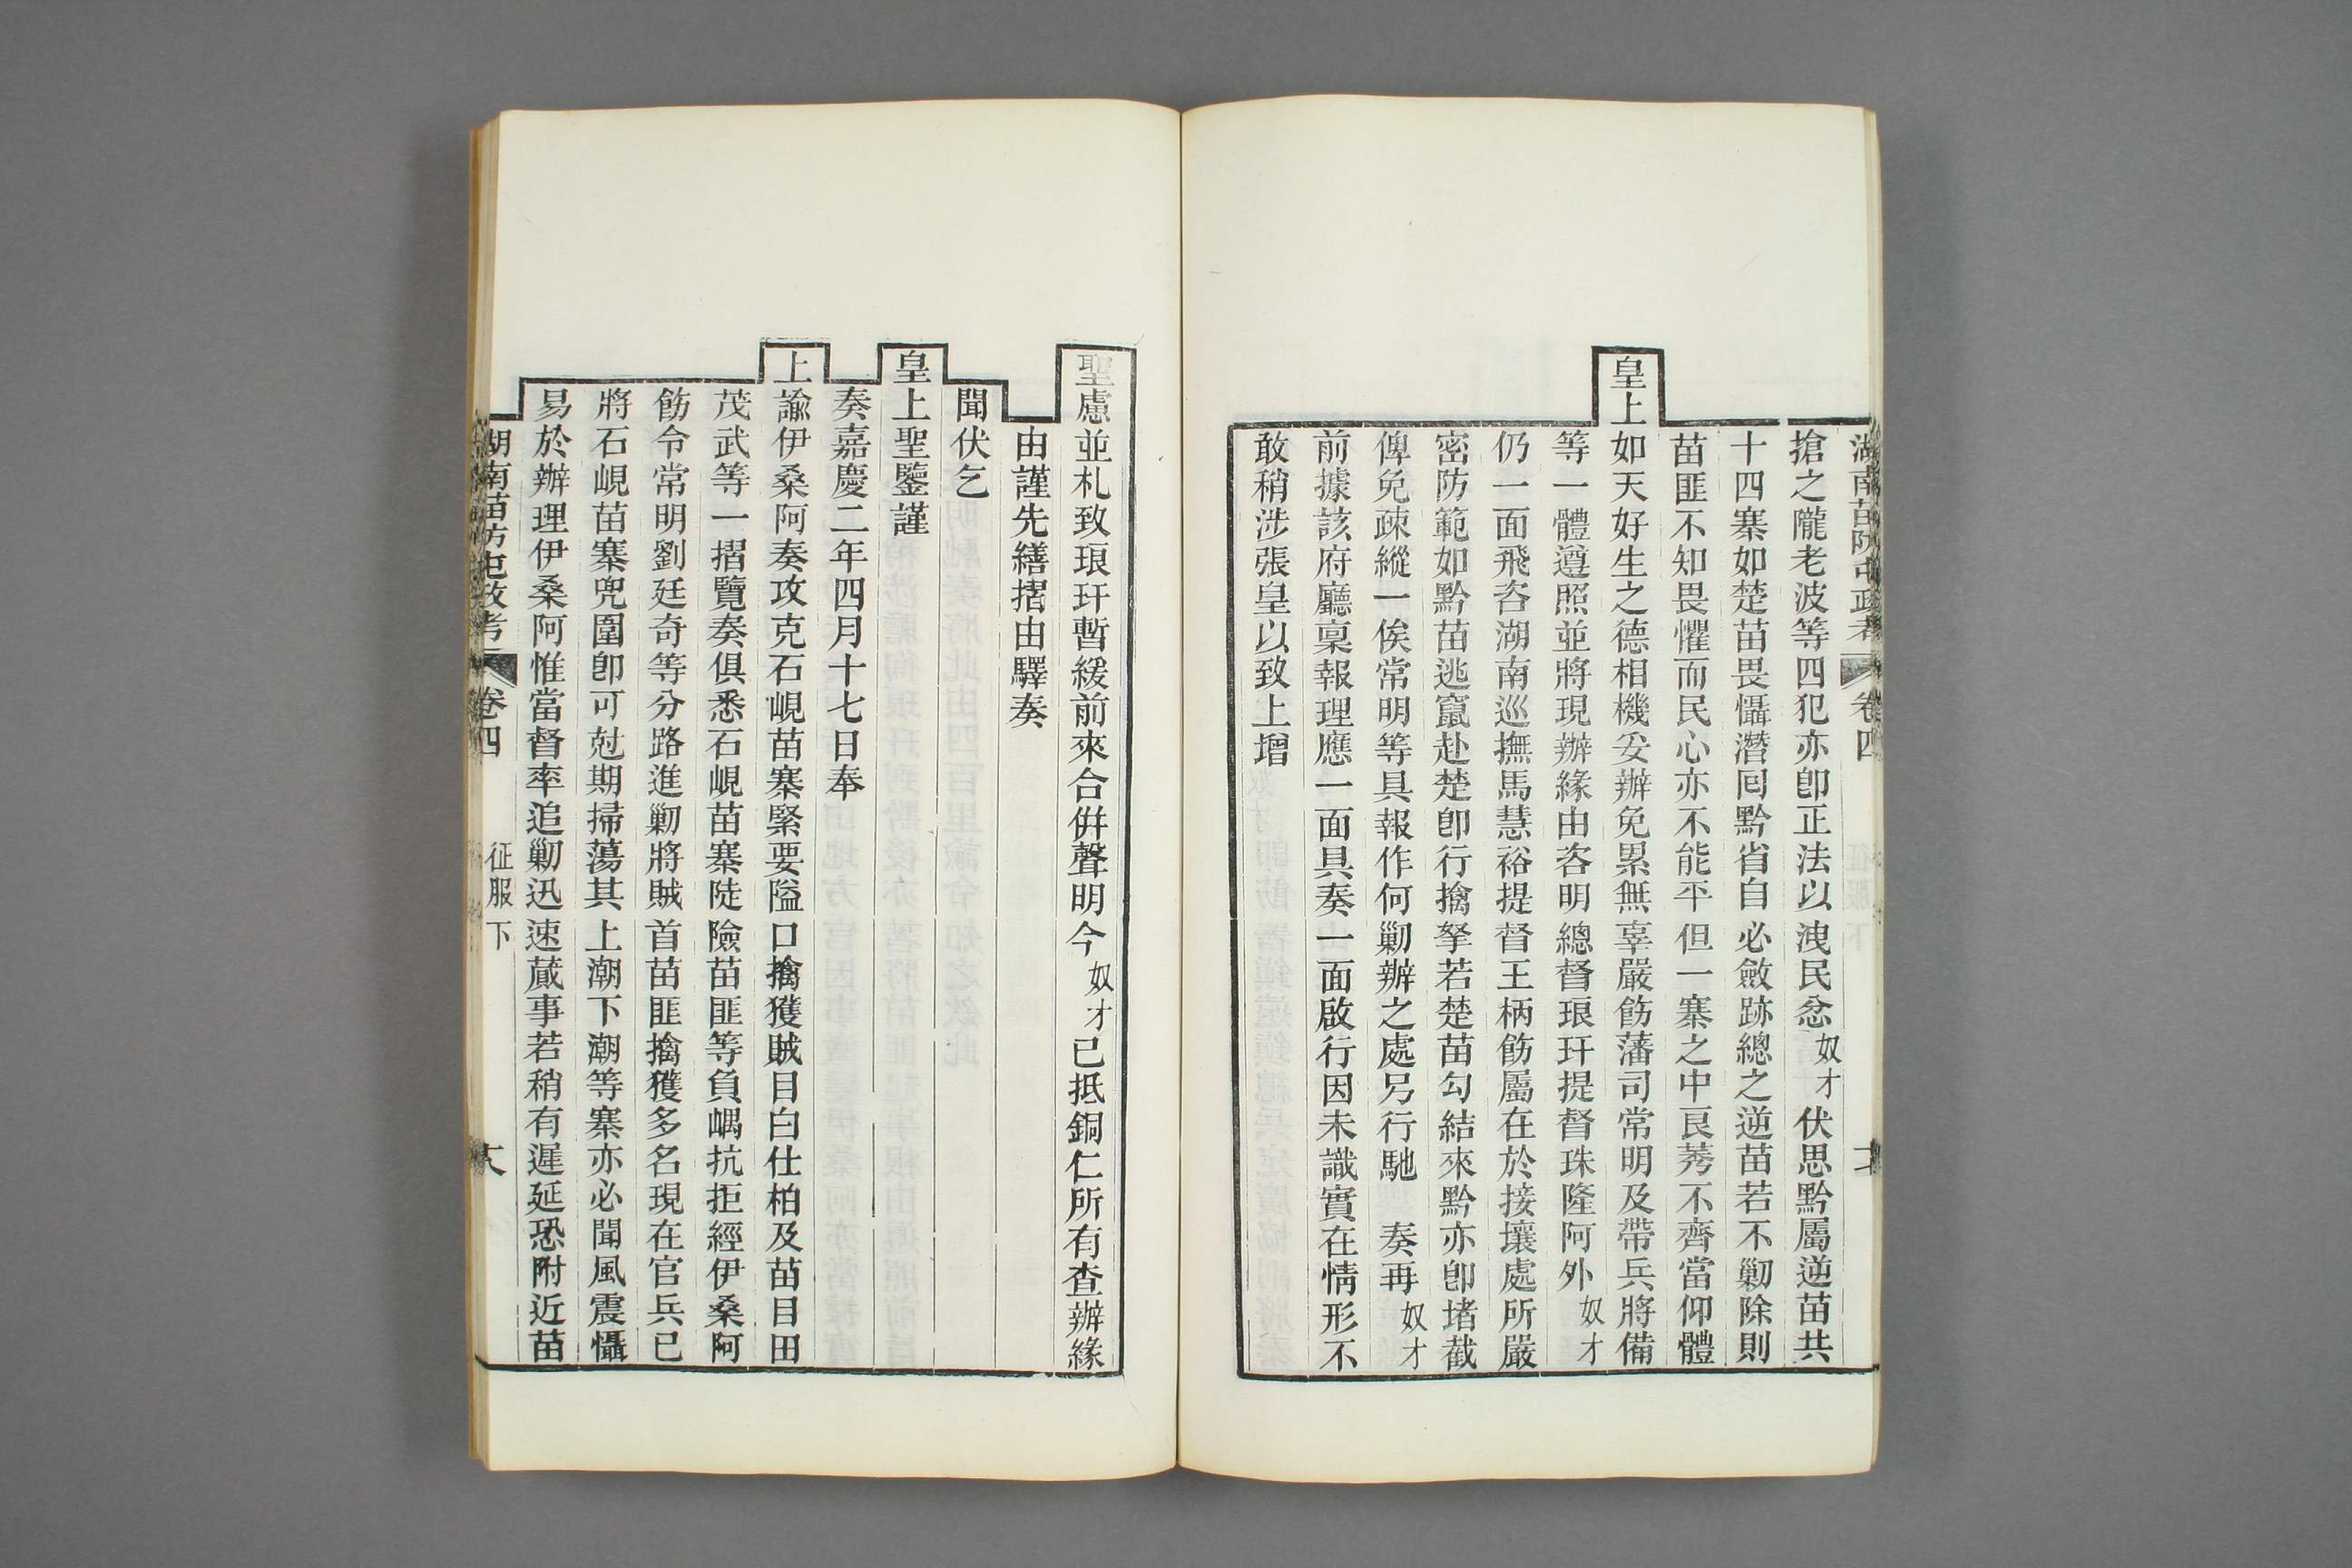 湖南苗防屯政考 卷四
搶之隴老波等四犯亦卽正法以洩民忿奴才伏思黔屬逆苗共
十四寨如楚苗畏懾潛囘黔省自必斂跡總之逆苗若不勦除則
苗匪不知畏懼而民心亦不能平但一寨之中良莠不齊當仰體
皇上如天好生之德相機妥辦免累無辜嚴飭藩司常明及帶兵將備
等一體遵照並將現辦緣由咨明總督琅玕提督珠隆阿外奴才
仍一面飛咨湖南巡撫馬慧裕提督王柄飭屬在於接壤處所嚴
密防範如黔苗逃竄赴楚卽行擒拏若楚苗勾結來黔亦卽堵截
俾免疎縱一俟常明等具報作何勦辦之處另行馳 奏再奴才
前據該府廳稟報理應一面具奏一面啟行因未識實在情形不
敢稍涉張皇以致上增
聖慮並札致琅玕暫緩前來合併聲明今奴才已抵銅仁所有查辦緣
由謹先繕摺由驛奏
聞伏乞
皇上聖鑒謹
奏嘉慶二年四月十七日奉
上諭伊桑阿奏攻克石峴苗寨緊要隘口擒獲賊目白仕柏及苗目田
茂武等一摺覽奏俱悉石峴苗寨陡險苗匪等負嵎抗拒經伊桑阿
飭令常明劉廷奇等分路進勦將賊首苗匪擒獲多名現在官兵已
將石峴苗寨兜圍卽可尅期掃蕩其上潮下潮等寨亦必聞風震懾
易於辦理伊桑阿惟當督率追勦迅速蕆事若稍有遲延恐附近苗
湖南苗防屯政考 卷四 征服下